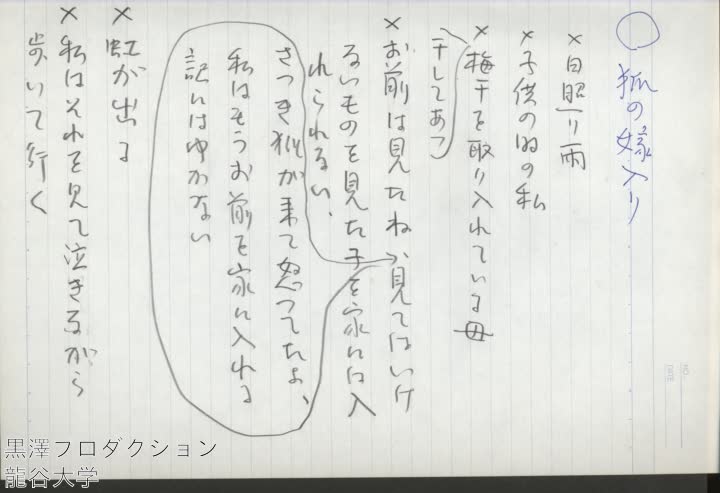 狐の嫁入り
×日照り雨
×子供の時の私
×梅干を取り入れている母
干してあつ
×お前は見たね、見てはいけ
ないものを見た子を家には入
れられない、
さつき狐が来て怒つてたよ、
私はもうお前を家に入れる
訳にはゆかない
×虹が出る
×私はそれを見て泣きながら
歩いて行く
NO.
DATE
黒澤プロダクション
龍谷大学